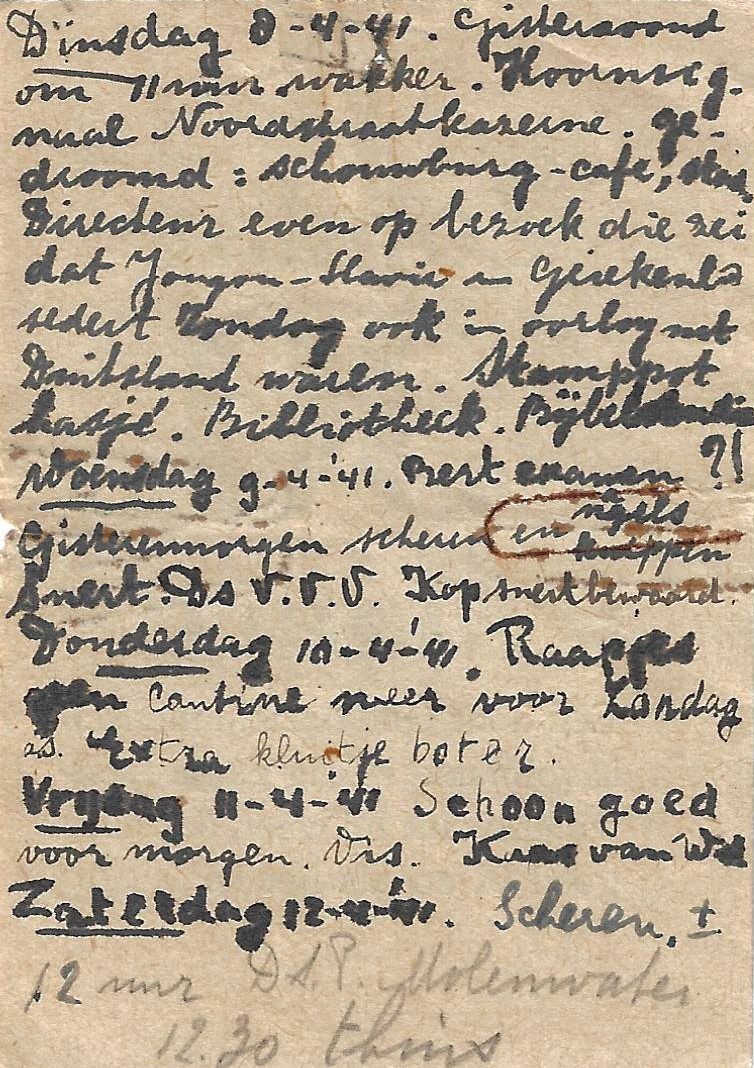 Dinsdag 8-4-'41. Gisteravond
om 11 uur wakker. Hoornsig-
naal Noordstraatkazerne. ge-
droomd: schouwburg-café,
Directeur even op bezoek die zei
dat Jougou-Slavië en Griekenl.
sedert Zondag ook in oorlog met
Duitsland waren. Stamppot
hasjé. Bibliotheek.
Woensdag 9-4-'41. Bert examen?!
Gisterenmorgen scheren en nagels
knippen
Snert. Ds V.V.V. Kop snert bewaard.
Donderdag 10-4-'41. Raapjes
geen Cantine meer voor Zondag
as. Extra kluitje boter.
Vrijdag 11-4-'41 Schoon goed
voor morgen. Vis. Kaas van
Zaterdag 12-4-'41. Scheren, ±
12 uur Ds. P. Molenwater
12.30 thuis